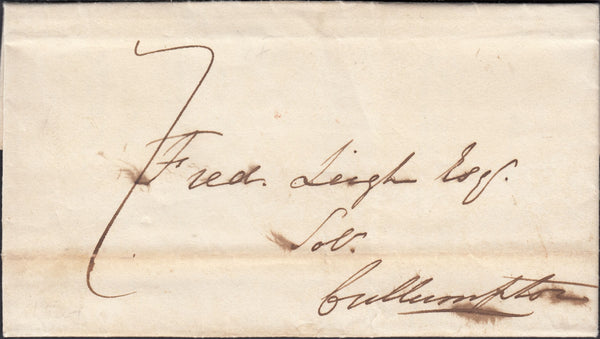 7
Fred. Leigh Esqr.
Solr.
Cullumpton